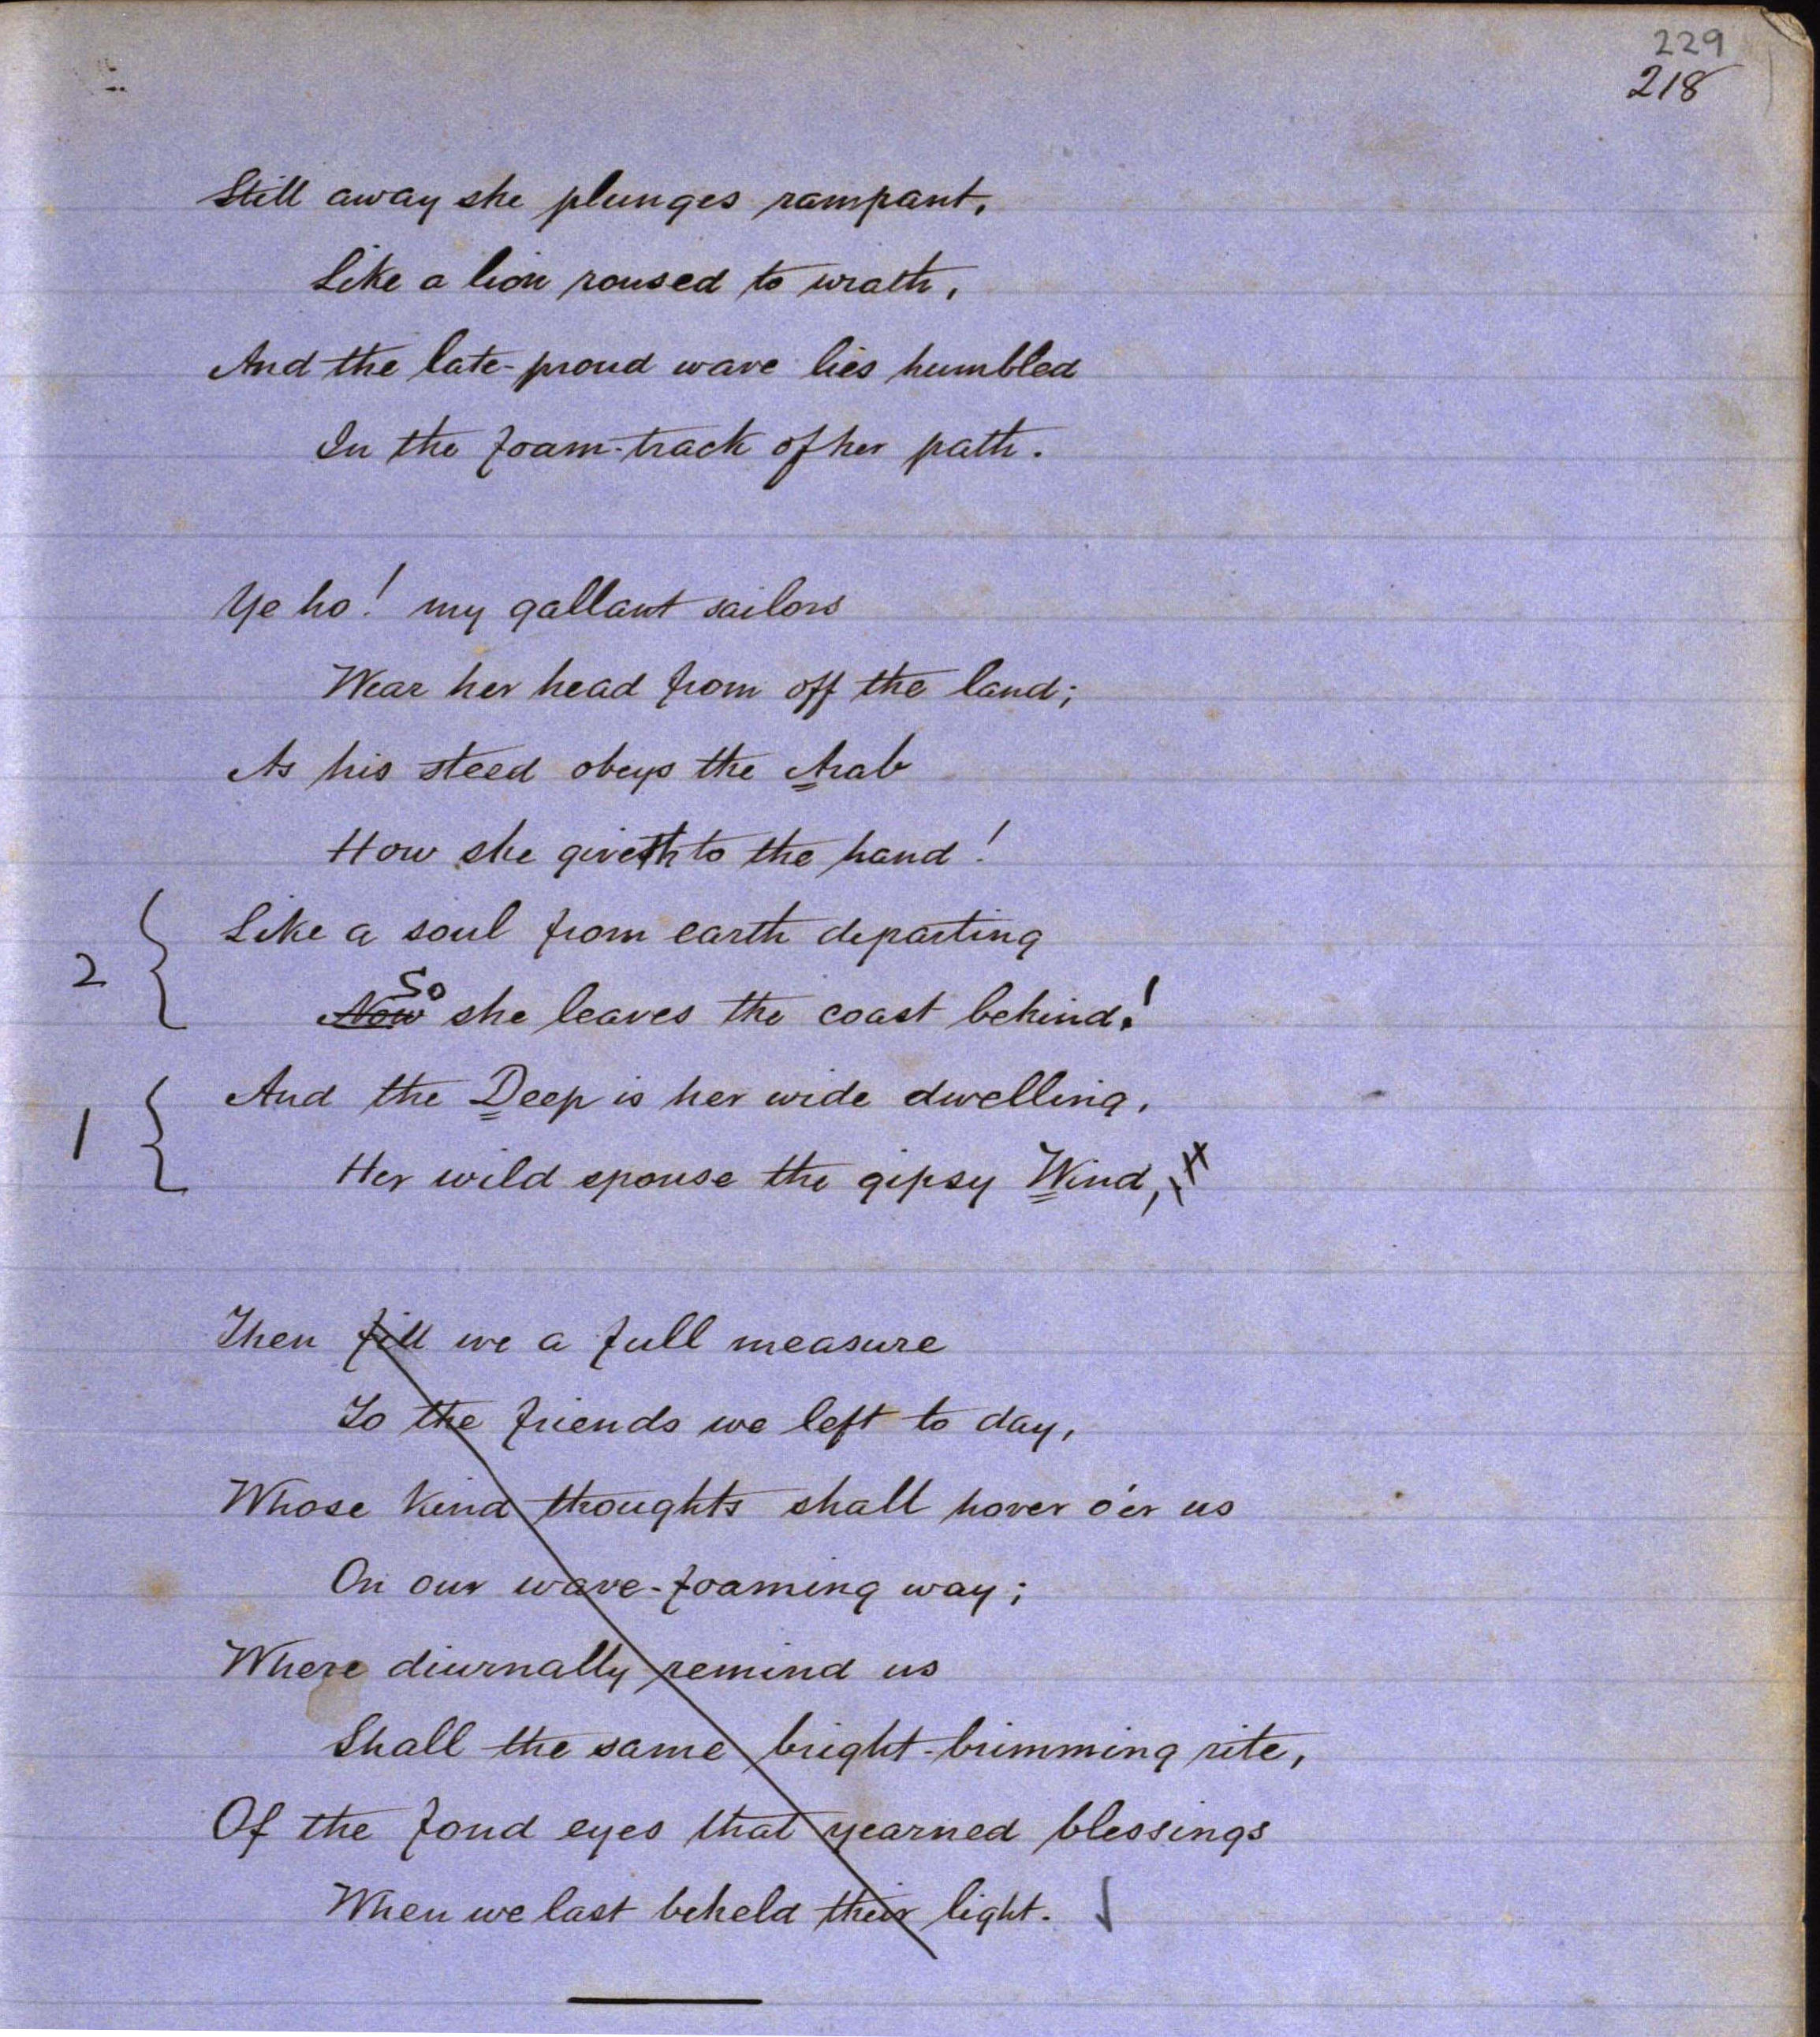 229
218
Still away she plunges rampant,
Like a lion roused to wrath,
And the late-proud wave lies humbled
In the foam-track of her path.
Ye ho! my gallant sailors
Wear her head from off the land;
As his steed obeys the Arab
How she giveth to the hand!
Like a soul from earth departing
2
So
Now she leaves the coast behind!
And the Deep is her wide dwelling,
1
Her wild spouse the gipsy Wind,
Then fill we a full measure
To the friends we left to day,
Whose kind thoughts shall hover o'er us
On our wave-foaming way;
Where diurnally remind us
Shall the same bright-brimming rite,
Of the fond eyes that yearned blessings
When we last beheld their light.